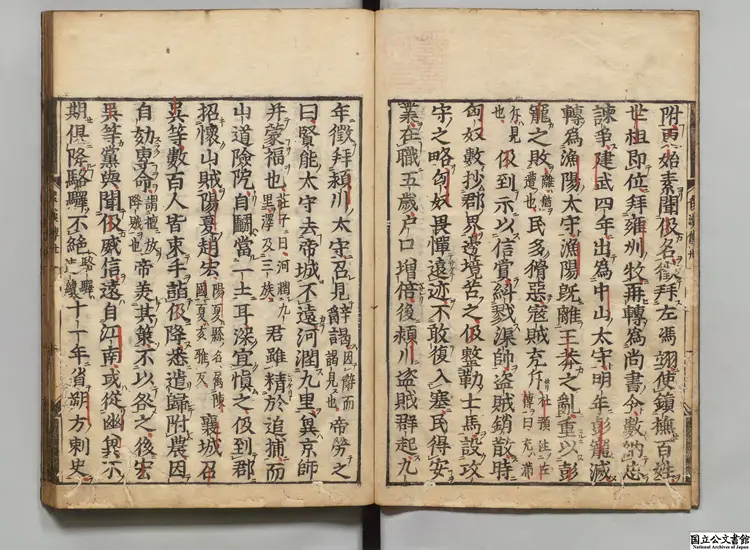 附更始素聞伋名徵拜左馮翊使鎮撫百姓
世祖即位拜雍州牧再轉為尚書令數納忠
諫爭建武四年出為中山太守明年彭寵滅
轉為漁陽太守漁陽既離王莽之亂重以彭
寵之敗離猶遭也民多猾惡寇賊充斥杜預注左傳曰充滿
斥見也伋到示以信賞糾戮渠帥盜賊銷散時
匈奴數抄郡界邊境苦之伋整勒士馬設攻
守之略匈奴畏憚遠迹不敢復入塞民得安
業在職五歲戶口增倍後潁川盜賊群起九
年徵拜潁川太守召見辭謁因辭而謁見也帝勞之
曰賢能太守去帝城不遠河潤九里冀京師
并蒙福也莊子曰河潤九里澤及三族君雖精於追捕而
山道險阸自鬬當一士耳深宜慎之伋到郡
招懷山賊陽夏趙宏陽夏縣名屬陳國夏亥雅反襄城召
吳等數百人皆束手詣伋降悉遣歸附農因
自劾專命謂擅放降賊也帝美其策不以咎之後宏
吳等黨與聞伋威信遠自江南或從幽冀不
期俱降駱驛不絕駱驛續十一年省朔方刺史
国立公文書館
National Archives of Japan